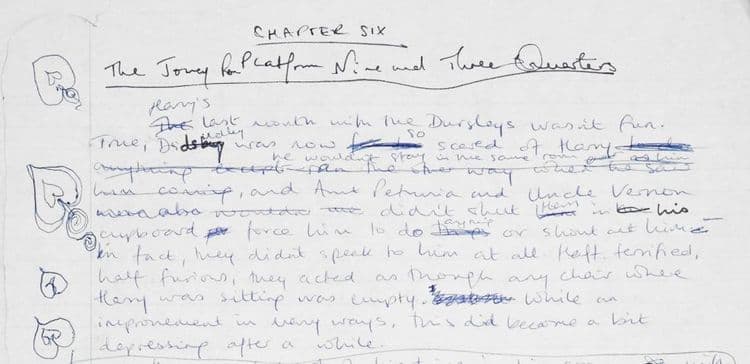 CHAPTER SIX
The Jorney from Platform Nine and Three Quarters
Harry's
The last month with the Dursleys wasn't fun.
True, Dudley was now so scared of Harry
he wouldn't stay in the same room as him
anything except run the other way when he saw
him coming, and Aunt Petunia and Uncle Vernon
didn't shut Harry in his
cupboard, force him to do anything or shout at him –
in fact, they didn't speak to him at all. Half terrified,
half furious, they acted as though any chair where
Harry was sitting was empty. While an
improvement in many ways, this did become a bit
depressing after a while.